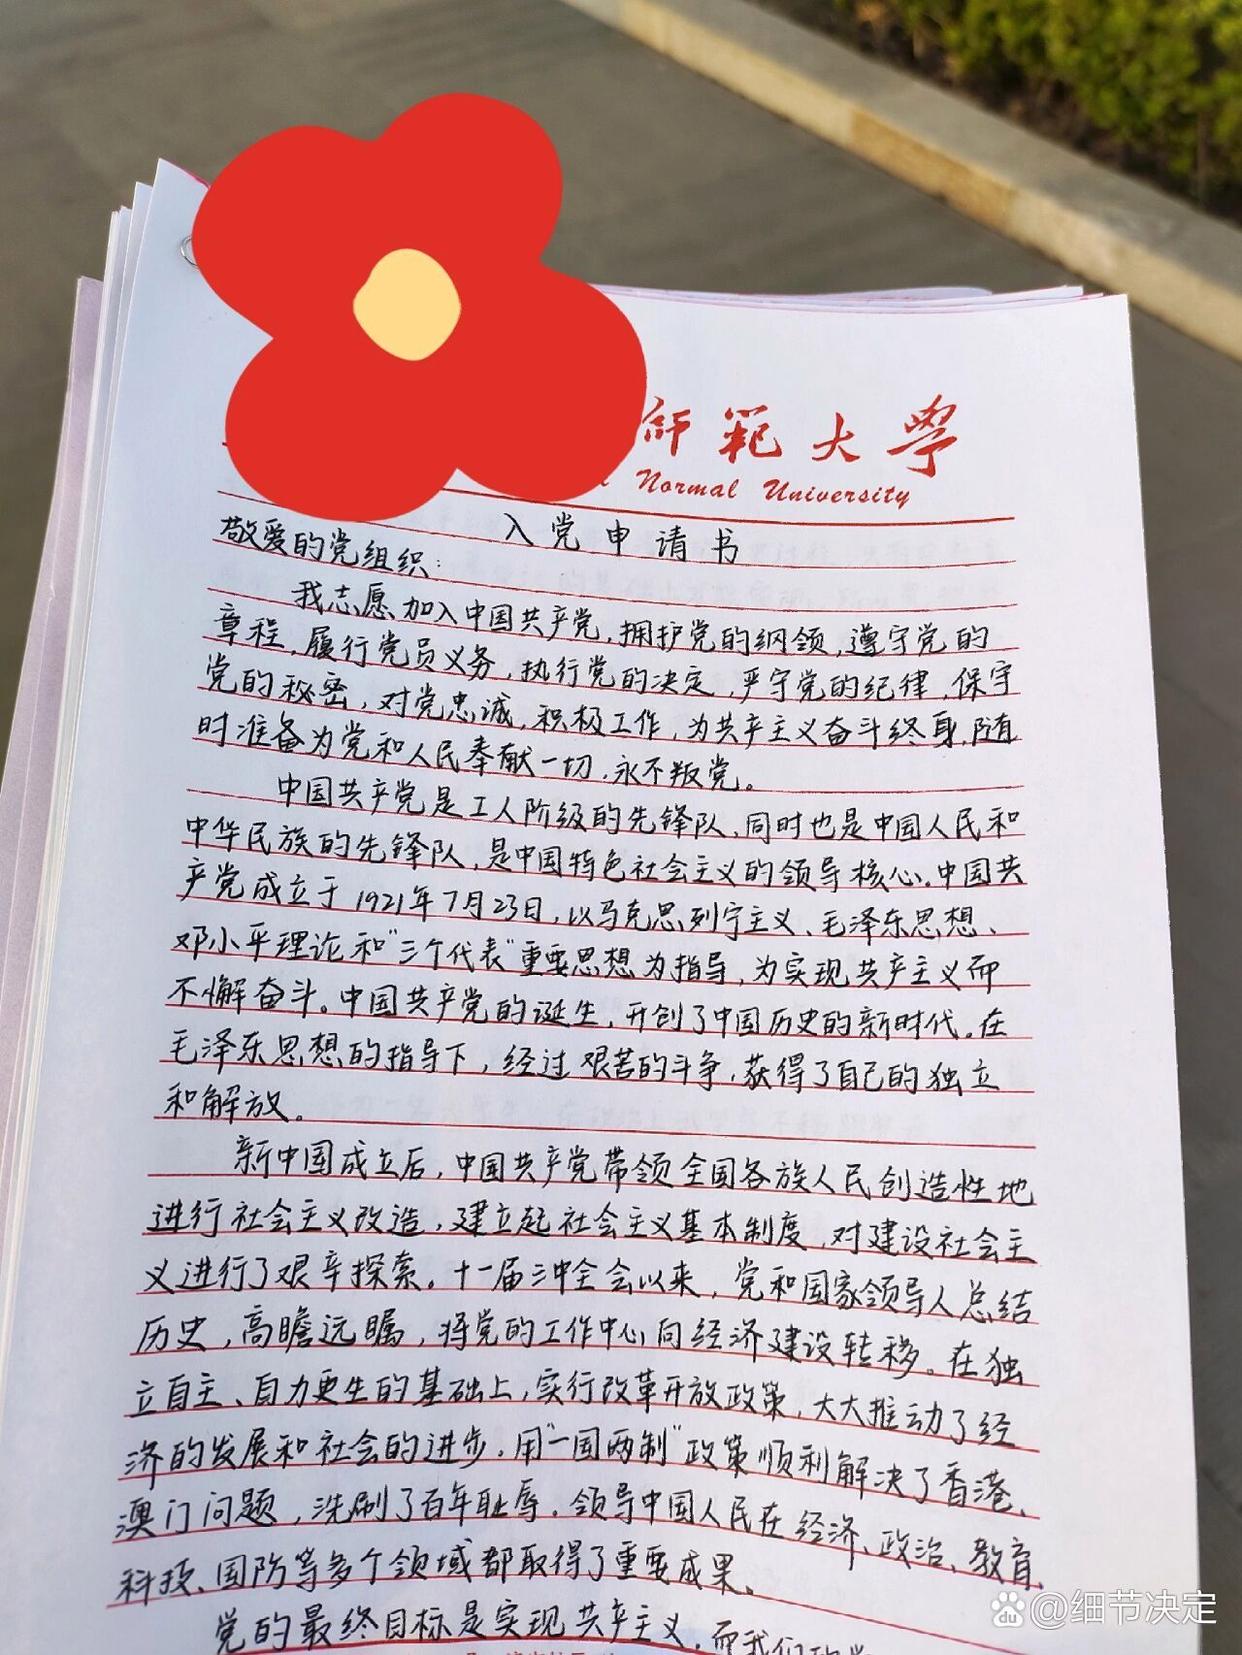 师范大学
Normal University
入党申请书
敬爱的党组织:
我志愿加入中国共产党,拥护党的纲领,遵守党的
章程,履行党员义务,执行党的决定,严守党的纪律,保守
党的秘密,对党忠诚,积极工作,为共产主义奋斗终身,随
时准备为党和人民奉献一切,永不叛党。
中国共产党是工人阶级的先锋队,同时也是中国人民和
中华民族的先锋队,是中国特色社会主义的领导核心。中国共
产党成立于1921年7月23日,以马克思列宁主义、毛泽东思想、
邓小平理论和"三个代表"重要思想为指导,为实现共产主义而
不懈奋斗。中国共产党的诞生,开创了中国历史的新时代。在
毛泽东思想的指导下,经过艰苦的斗争,获得了自己的独立
和解放。
新中国成立后,中国共产党带领全国各族人民创造性地
进行社会主义改造,建立起社会主义基本制度,对建设社会主
义进行了艰辛探索。十一届三中全会以来,党和国家领导人总结
历史,高瞻远瞩,将党的工作中心向经济建设转移。在独
立自主、自力更生的基础上,实行改革开放政策,大大推动了经
济的发展和社会的进步。用"一国两制"政策顺利解决了香港、
澳门问题,洗刷了百年耻辱。领导中国人民在经济、政治、教育、
科技、国防等多个领域都取得了重要成果。
党的最终目标是实现共产主义,而我们的
@细节决定